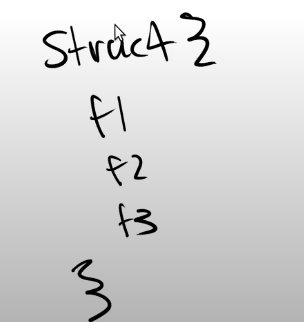 Struct {
f1
f2
f3
}